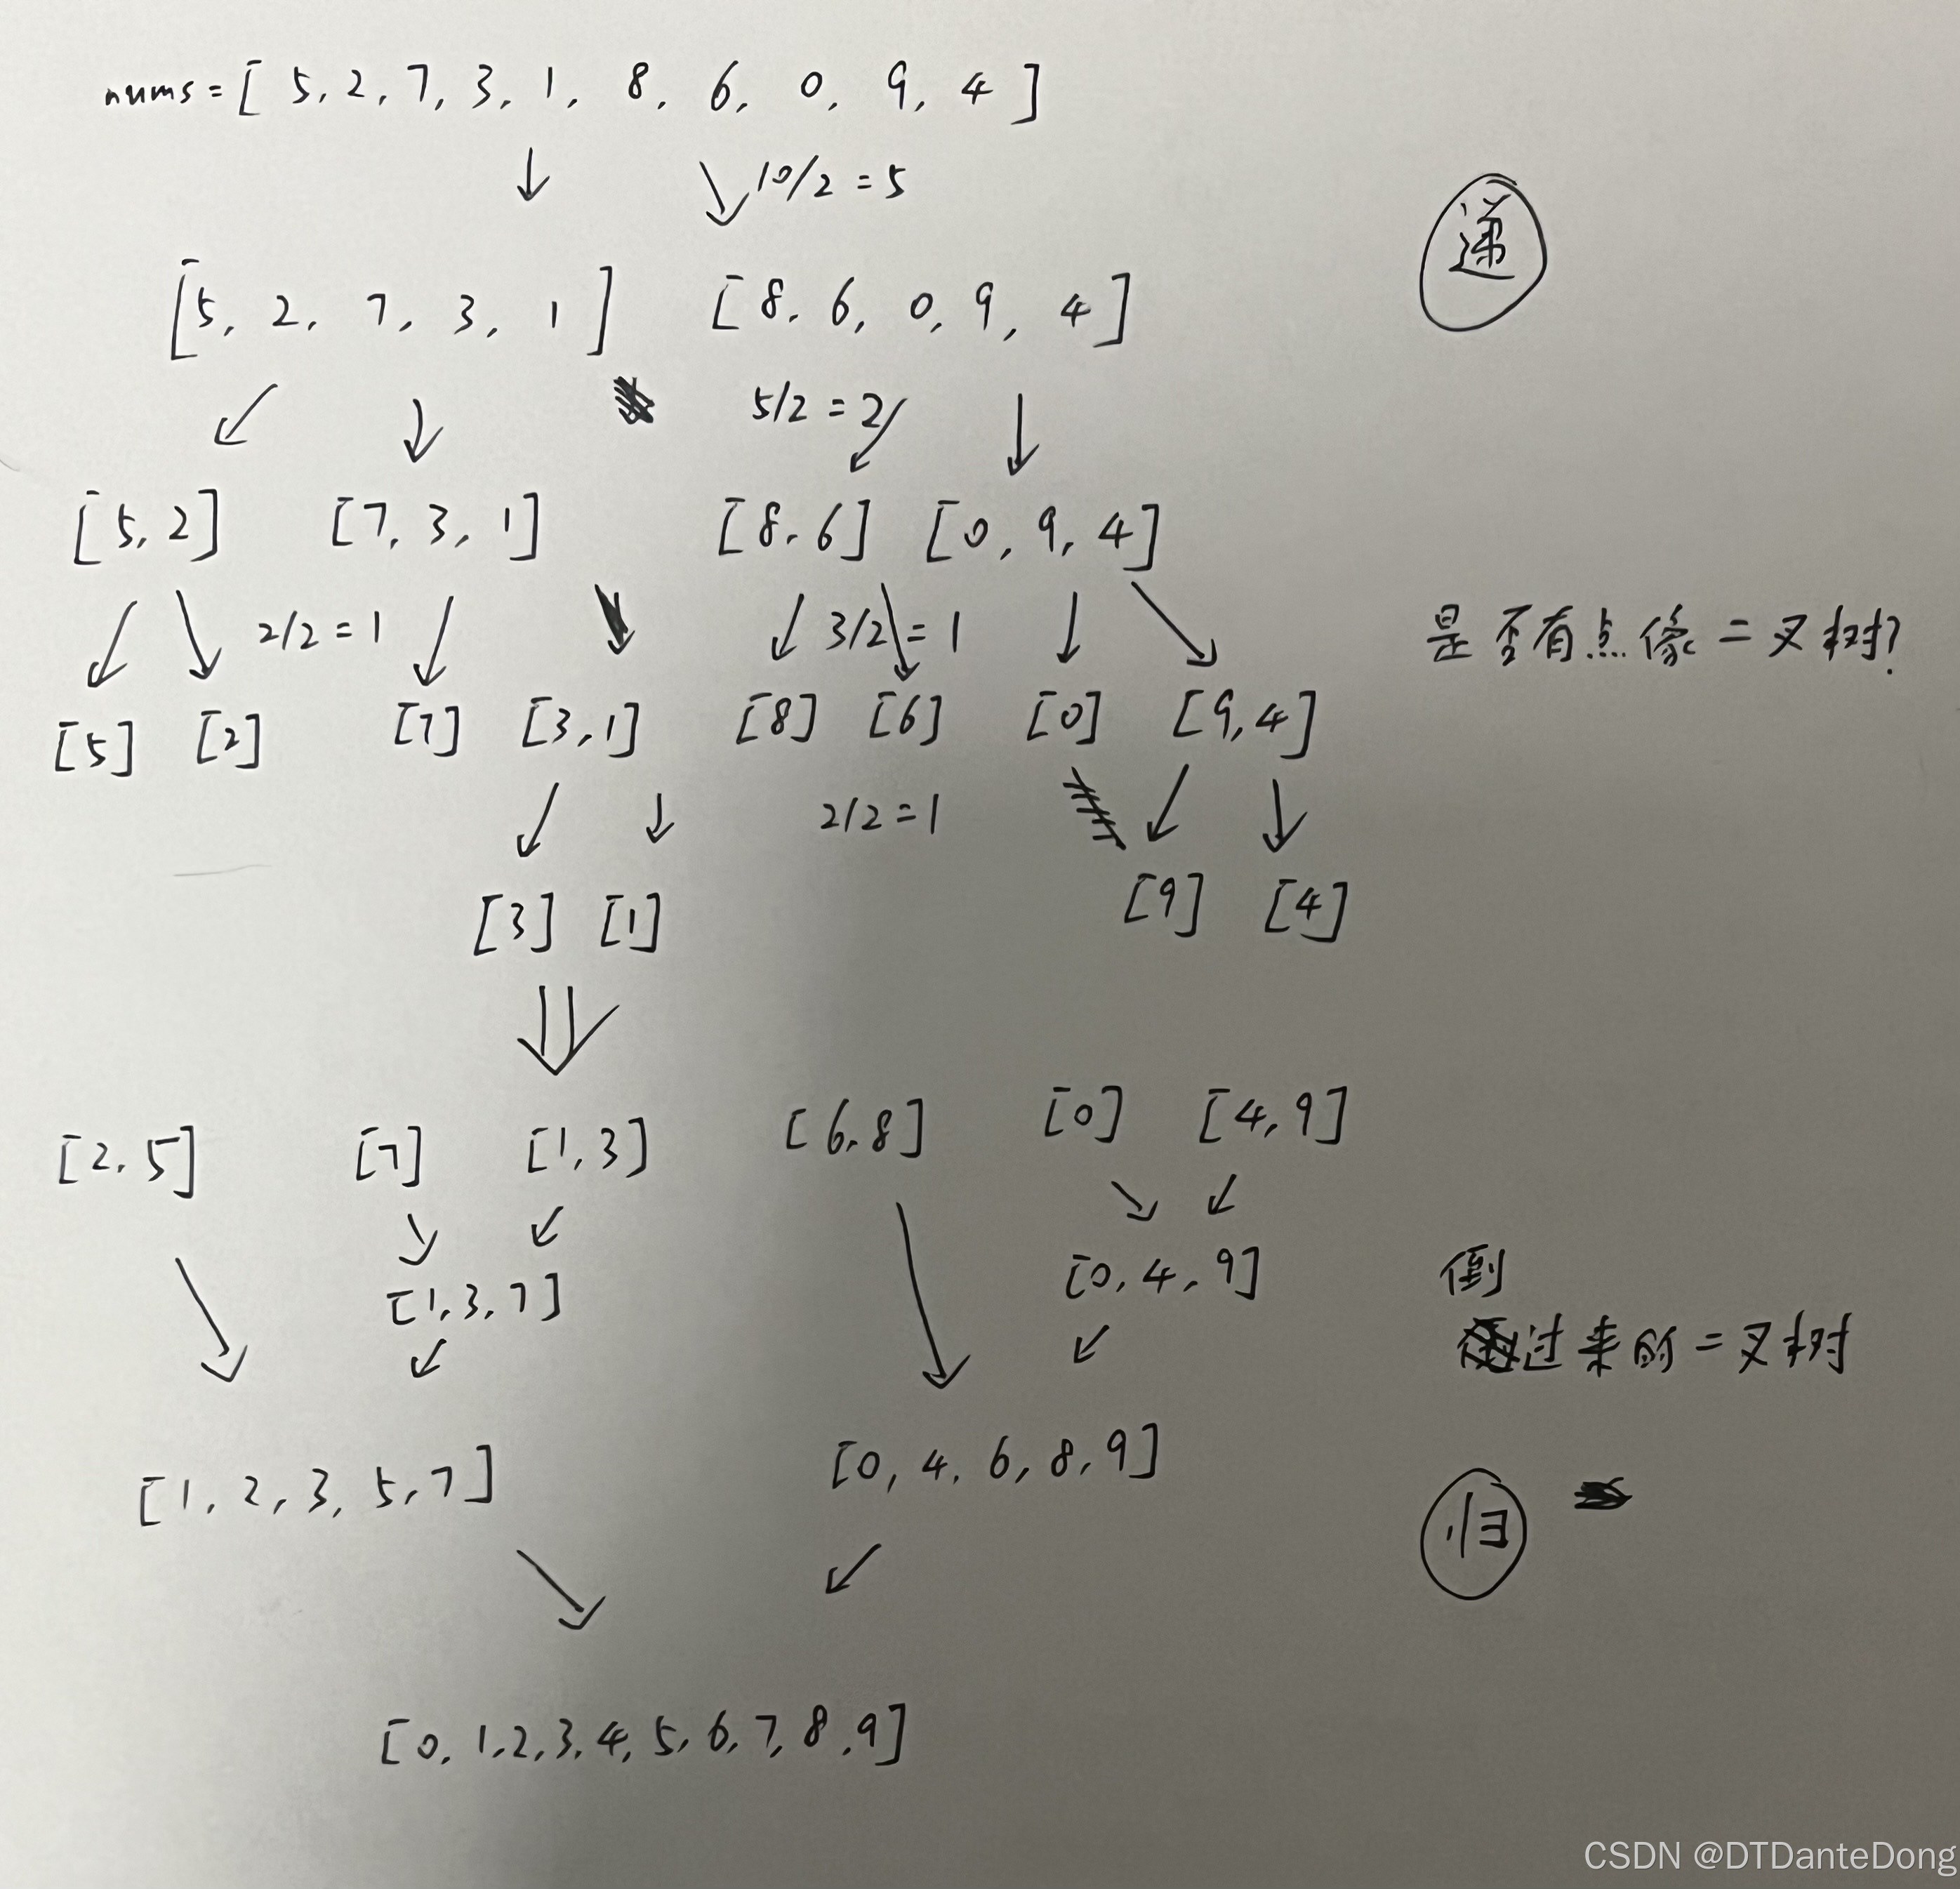 nums = [ 5, 2, 7, 3, 1, 8, 6, 0, 9, 4 ]
10/2 = 5
递
[5, 2, 7, 3, 1] [8, 6, 0, 9, 4]
5/2 = 2
[5, 2] [7, 3, 1] [8, 6] [0, 9, 4]
2/2 = 1 3/2 = 1
是否有点像二叉树?
[5] [2] [7] [3, 1] [8] [6] [0] [9, 4]
2/2 = 1
[3] [1] [9] [4]
[2, 5] [7] [1, 3] [6, 8] [0] [4, 9]
[1, 3, 7] [0, 4, 9]
倒
过来的二叉树
[1, 2, 3, 5, 7] [0, 4, 6, 8, 9]
归
[0, 1, 2, 3, 4, 5, 6, 7, 8, 9]
CSDN @DTDanteDong